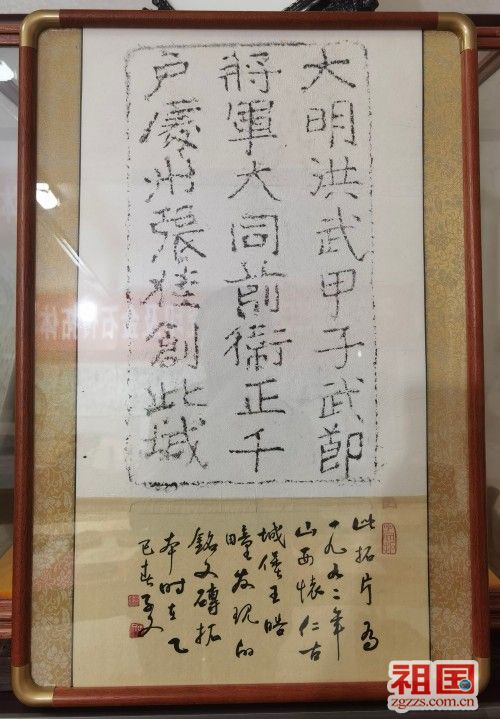 大明洪武甲子武節
將軍大同前衛正千
戶州張桂創此城
此拓片为
一九九二年
山西懷仁古
城堡王皓
疃发现的
銘文磚拓
本时在乙
巳春子文
祖国
zgzzs.com.cn